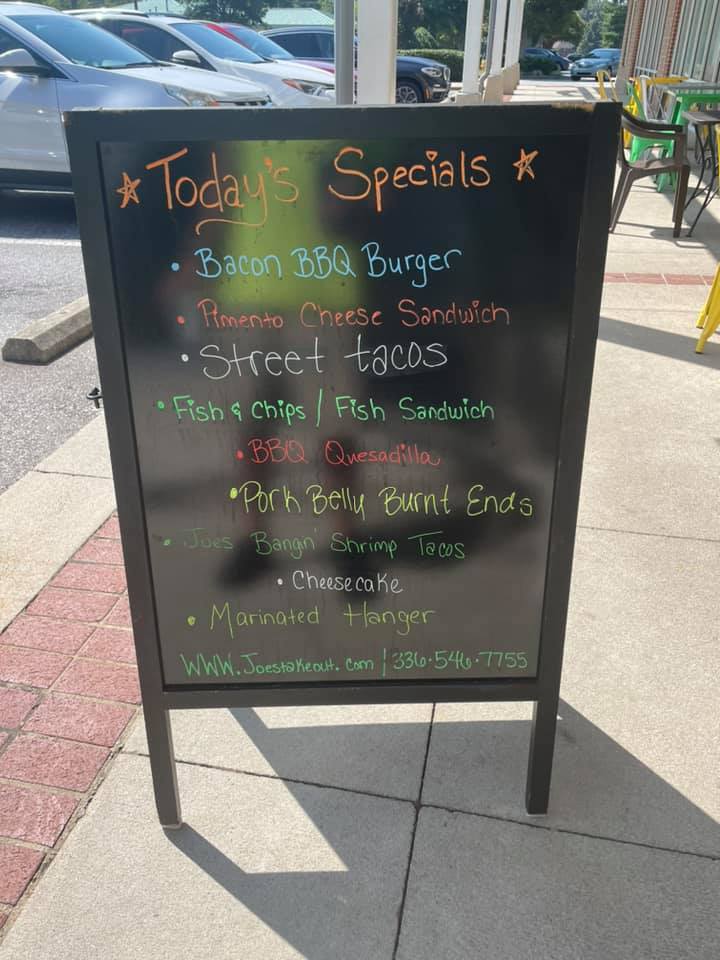 Today's Specials
• Bacon BBQ Burger
• Pimento Cheese Sandwich
• Street tacos
• Fish & Chips / Fish Sandwich
• BBQ Quesadilla
• Pork Belly Burnt Ends
• Joes Bangn' Shrimp Tacos
• Cheesecake
• Marinated Hanger
WWW.Joestakeout.com | 336-546-7755